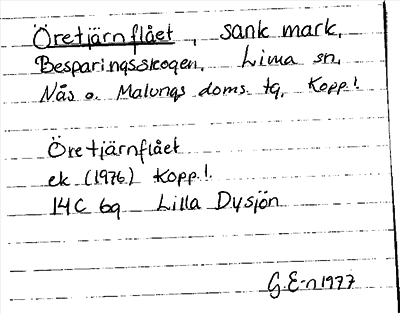 Öretjärnflået, sank mark,
Besparingsskogen, Lima sn,
Nås o. Malungs doms. tg, Kopp. l.
Öretjärnflået
ek (1976) Kopp. l.
14C 6g Lilla Dysjön
G.E-n 1977